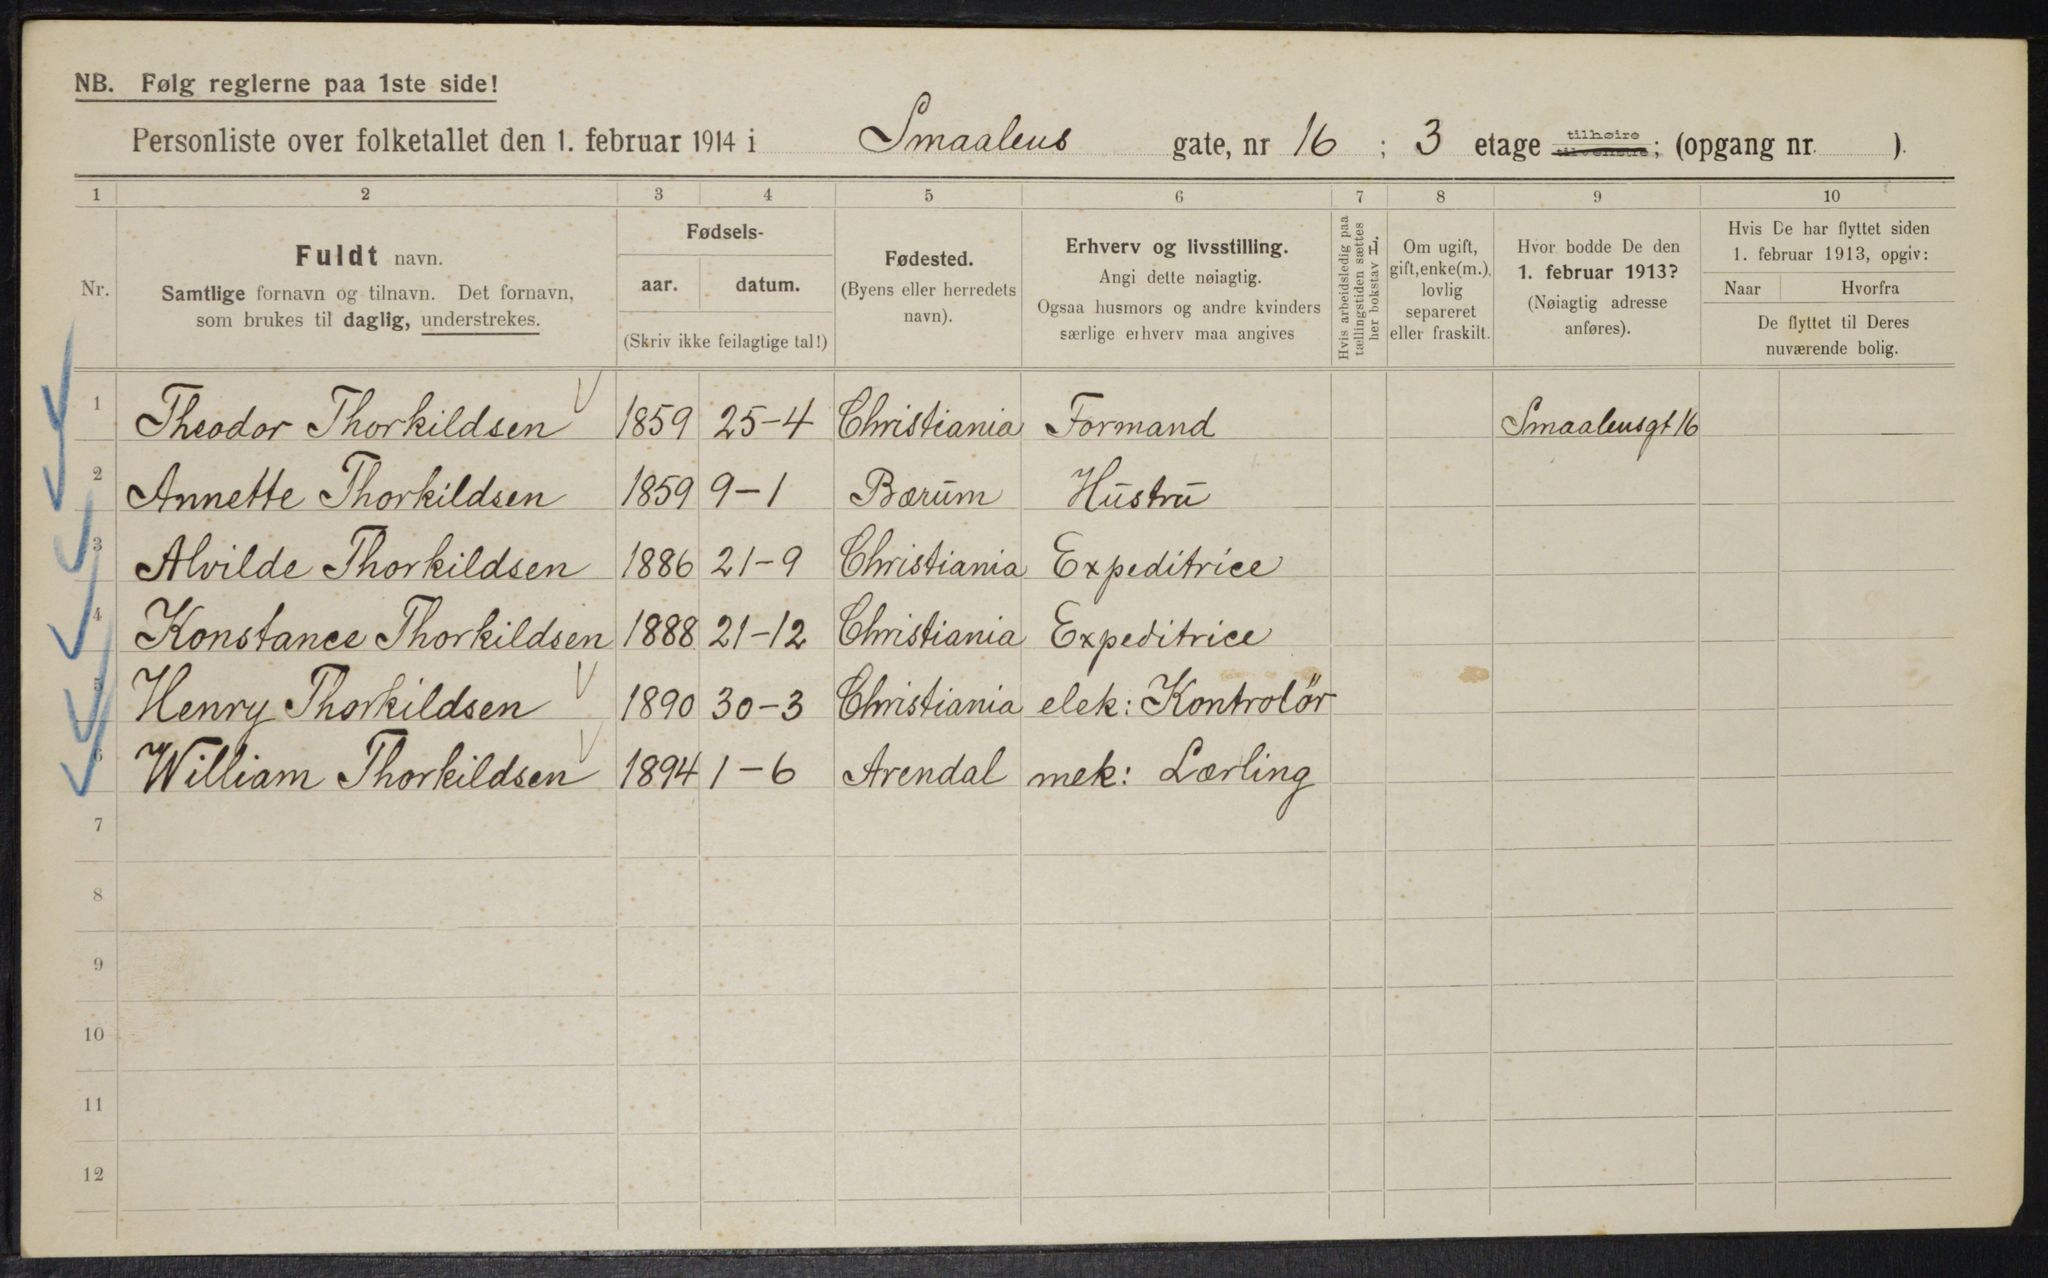 NB. Følg reglerne paa 1ste side!
Personliste over folketallet den 1. februar 1914 i Smaalens gate, nr 16 ; 3 etage tilhøire tilvenstre; (opgang nr. ).
1 2 3 4 5 6 7 8 9 10
Nr.
Fuldt navn.
Samtlige fornavn og tilnavn. Det fornavn,
som brukes til daglig, understrekes.
Fødsels-
aar. datum.
(Skriv ikke feilagtige tal!)
Fødested.
(Byens eller herredets
navn).
Erhverv og livsstilling.
Angi dette nøiagtig.
Ogsaa husmors og andre kvinders
særlige erhverv maa angives
Hvis arbeidsledig paa
tællingstiden sættes
her bokstav L.
Om ugift,
gift, enke(m.),
lovlig
separeret
eller fraskilt.
Hvor bodde De den
1. februar 1913?
(Nøiagtig adresse
anføres).
Hvis De har flyttet siden
1. februar 1913, opgiv:
Naar Hvorfra
De flyttet til Deres
nuværende bolig.
1 Theodor Thorkildsen 1859 25-4 Christiania Formand Smaalensgt 16
2 Annette Thorkildsen 1859 9-1 Bærum Hustru
3 Alvilde Thorkildsen 1886 21-9 Christiania Expeditrice
4 Konstance Thorkildsen 1888 21-12 Christiania Expeditrice
5 Henry Thorkildsen 1890 30-3 Christiania elek: Kontrolör
6 William Thorkildsen 1894 1-6 Arendal mek: Lærling
7
8
9
10
11
12